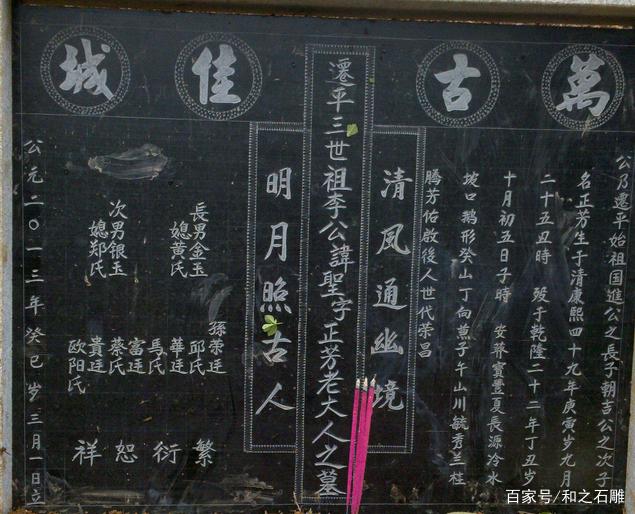 萬古佳城
公乃遷平始祖国進公之長子朝吉公之次子
名正芳生于清康熙四十九年庚寅岁九月
二十五丑時 殁于乾隆二十二年丁丑岁
十月初五日子時 安葬寶豊夏長源冷水
坡口鹅形癸山丁向子午山川毓秀兰桂
騰芳佑啟後人世代荣昌
清風通幽境
遷平三世祖李公諱聖字正芳老大人之墓
明月照古人
長男金玉
媳黄氏
次男银玉
媳郑氏
孫荣廷
邱氏
華廷
馬氏
富廷
蔡氏
貴廷
欧阳氏
繁衍恕祥
公元二0一三年癸巳岁三月一日立
百家号/和之石雕